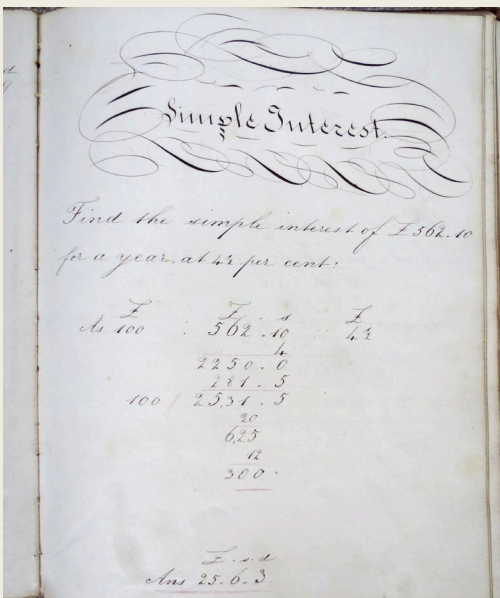 Simple Interest.
Find the simple interest of £562.10
for a year, at 4½ per cent:
£ £ . s £
As 100 : 562 . 10 :: 4½
4
2250 . 0
281 . 5
100 / 25,31 . 5
20
6,25
12
3,00
£ . s . d
Ans 25 . 6 . 3